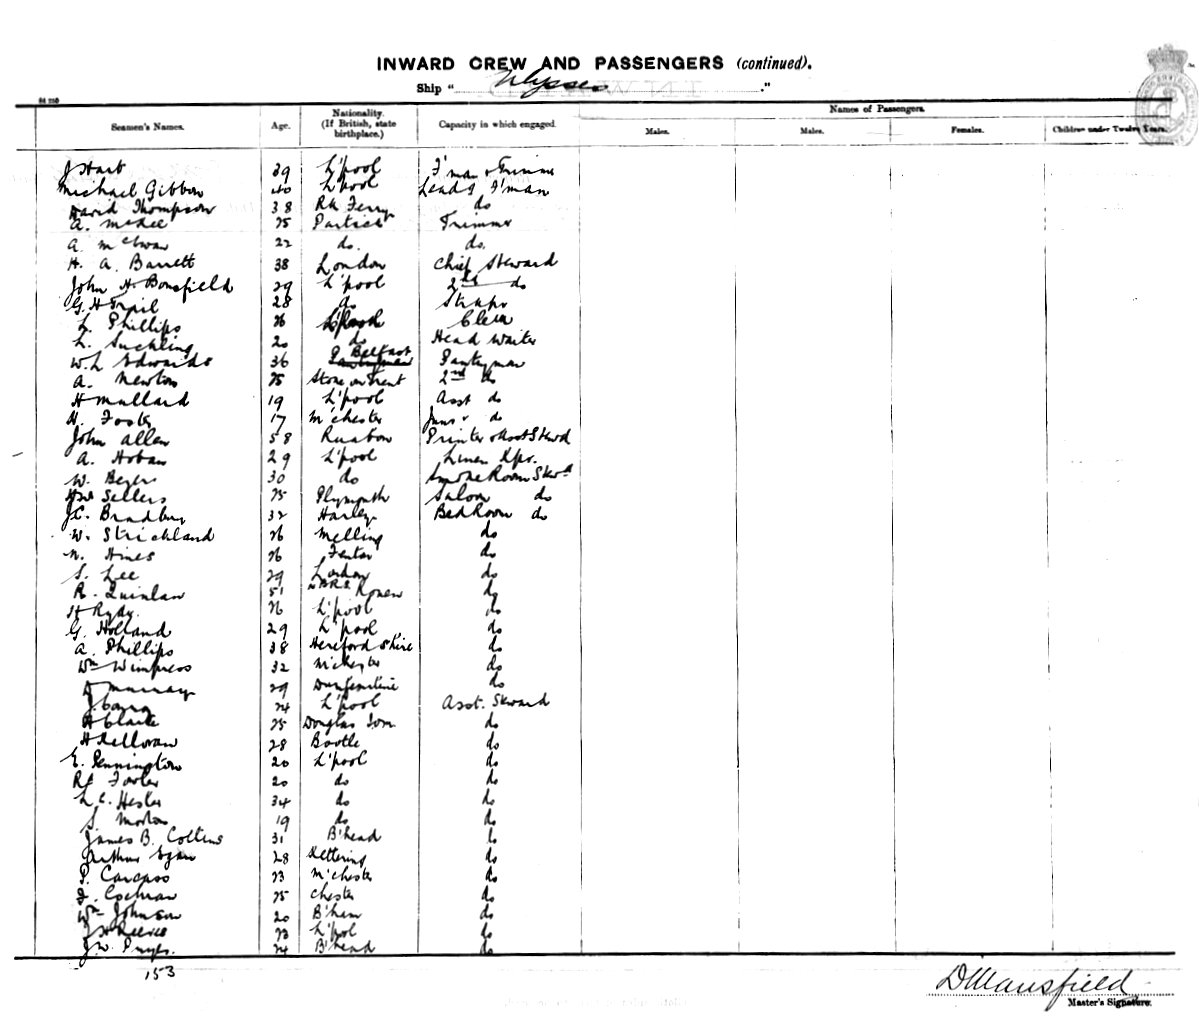 INWARD CREW AND PASSENGERS (continued).
Ship " Ulysses ."
Seamen's Names. Age. Nationality. (If British, state birthplace.) Capacity in which engaged. Names of Passengers.
Males. Males. Females. Children under Twelve Years.
J Hart 39 L'pool F'man & Trimmr
Michael Gibbon 40 L'pool Leadg F'man
David Thompson 38 Rk Ferry do
A. McKee 25 Partick Trimmer
A. McEwan 22 do. do.
H. A. Barrett 38 London Chief Steward
John H. Bonsfield 29 L'pool 2nd do
G. H Trail 28 do
L. Phillips 26 L'pool Clerk
L. Suckling 20 do Head Waiter
W. L Edwards 36 Belfast Pantryman
A. Newton 25 Stoke on Trent 2nd do
H Mullard 19 L'pool Asst do
H. Foster 17 M'chester Junr do
John Allen 58 Ruabon Printer & Asst Stewd
A. Hoban 29 L'pool Linen Kpr.
W. Beyer 30 do Smoke Room Stwd
Hw Sellers 25 Plymouth Saloon do
J.C. Bradbury 32 Harley Bed Room do
W. Strickland 26 Melling do
N. Hines 26 Fenton do
S. Lee 29 London do
R. Quinlan 51 Rouen do
H Ryder 26 L'pool do
G. Holland 29 L'pool do
A. Phillips 38 Herefordshire do
Wm Wimpress 32 M'chester do
A Murray 29 Dunfermline do
24 L'pool Asst. Steward
H Clarke 25 Douglas Iom do
H Kelloran 28 Bootle do
E. Pennington 20 L'pool do
Fowler 20 do do
L. C. Hester 34 do do
S. Morton 19 do do
James B. Collins 31 B'head do
Arthur Egan 28 Kettering do
P. Carcaso 23 M'chester do
F. Cochran 25 Chester do
Wm Johnson 20 B'ham do
J H Reeves 23 L'pol do
J. W. 24 B'head do
153
D Mansfield
Master's Signature.